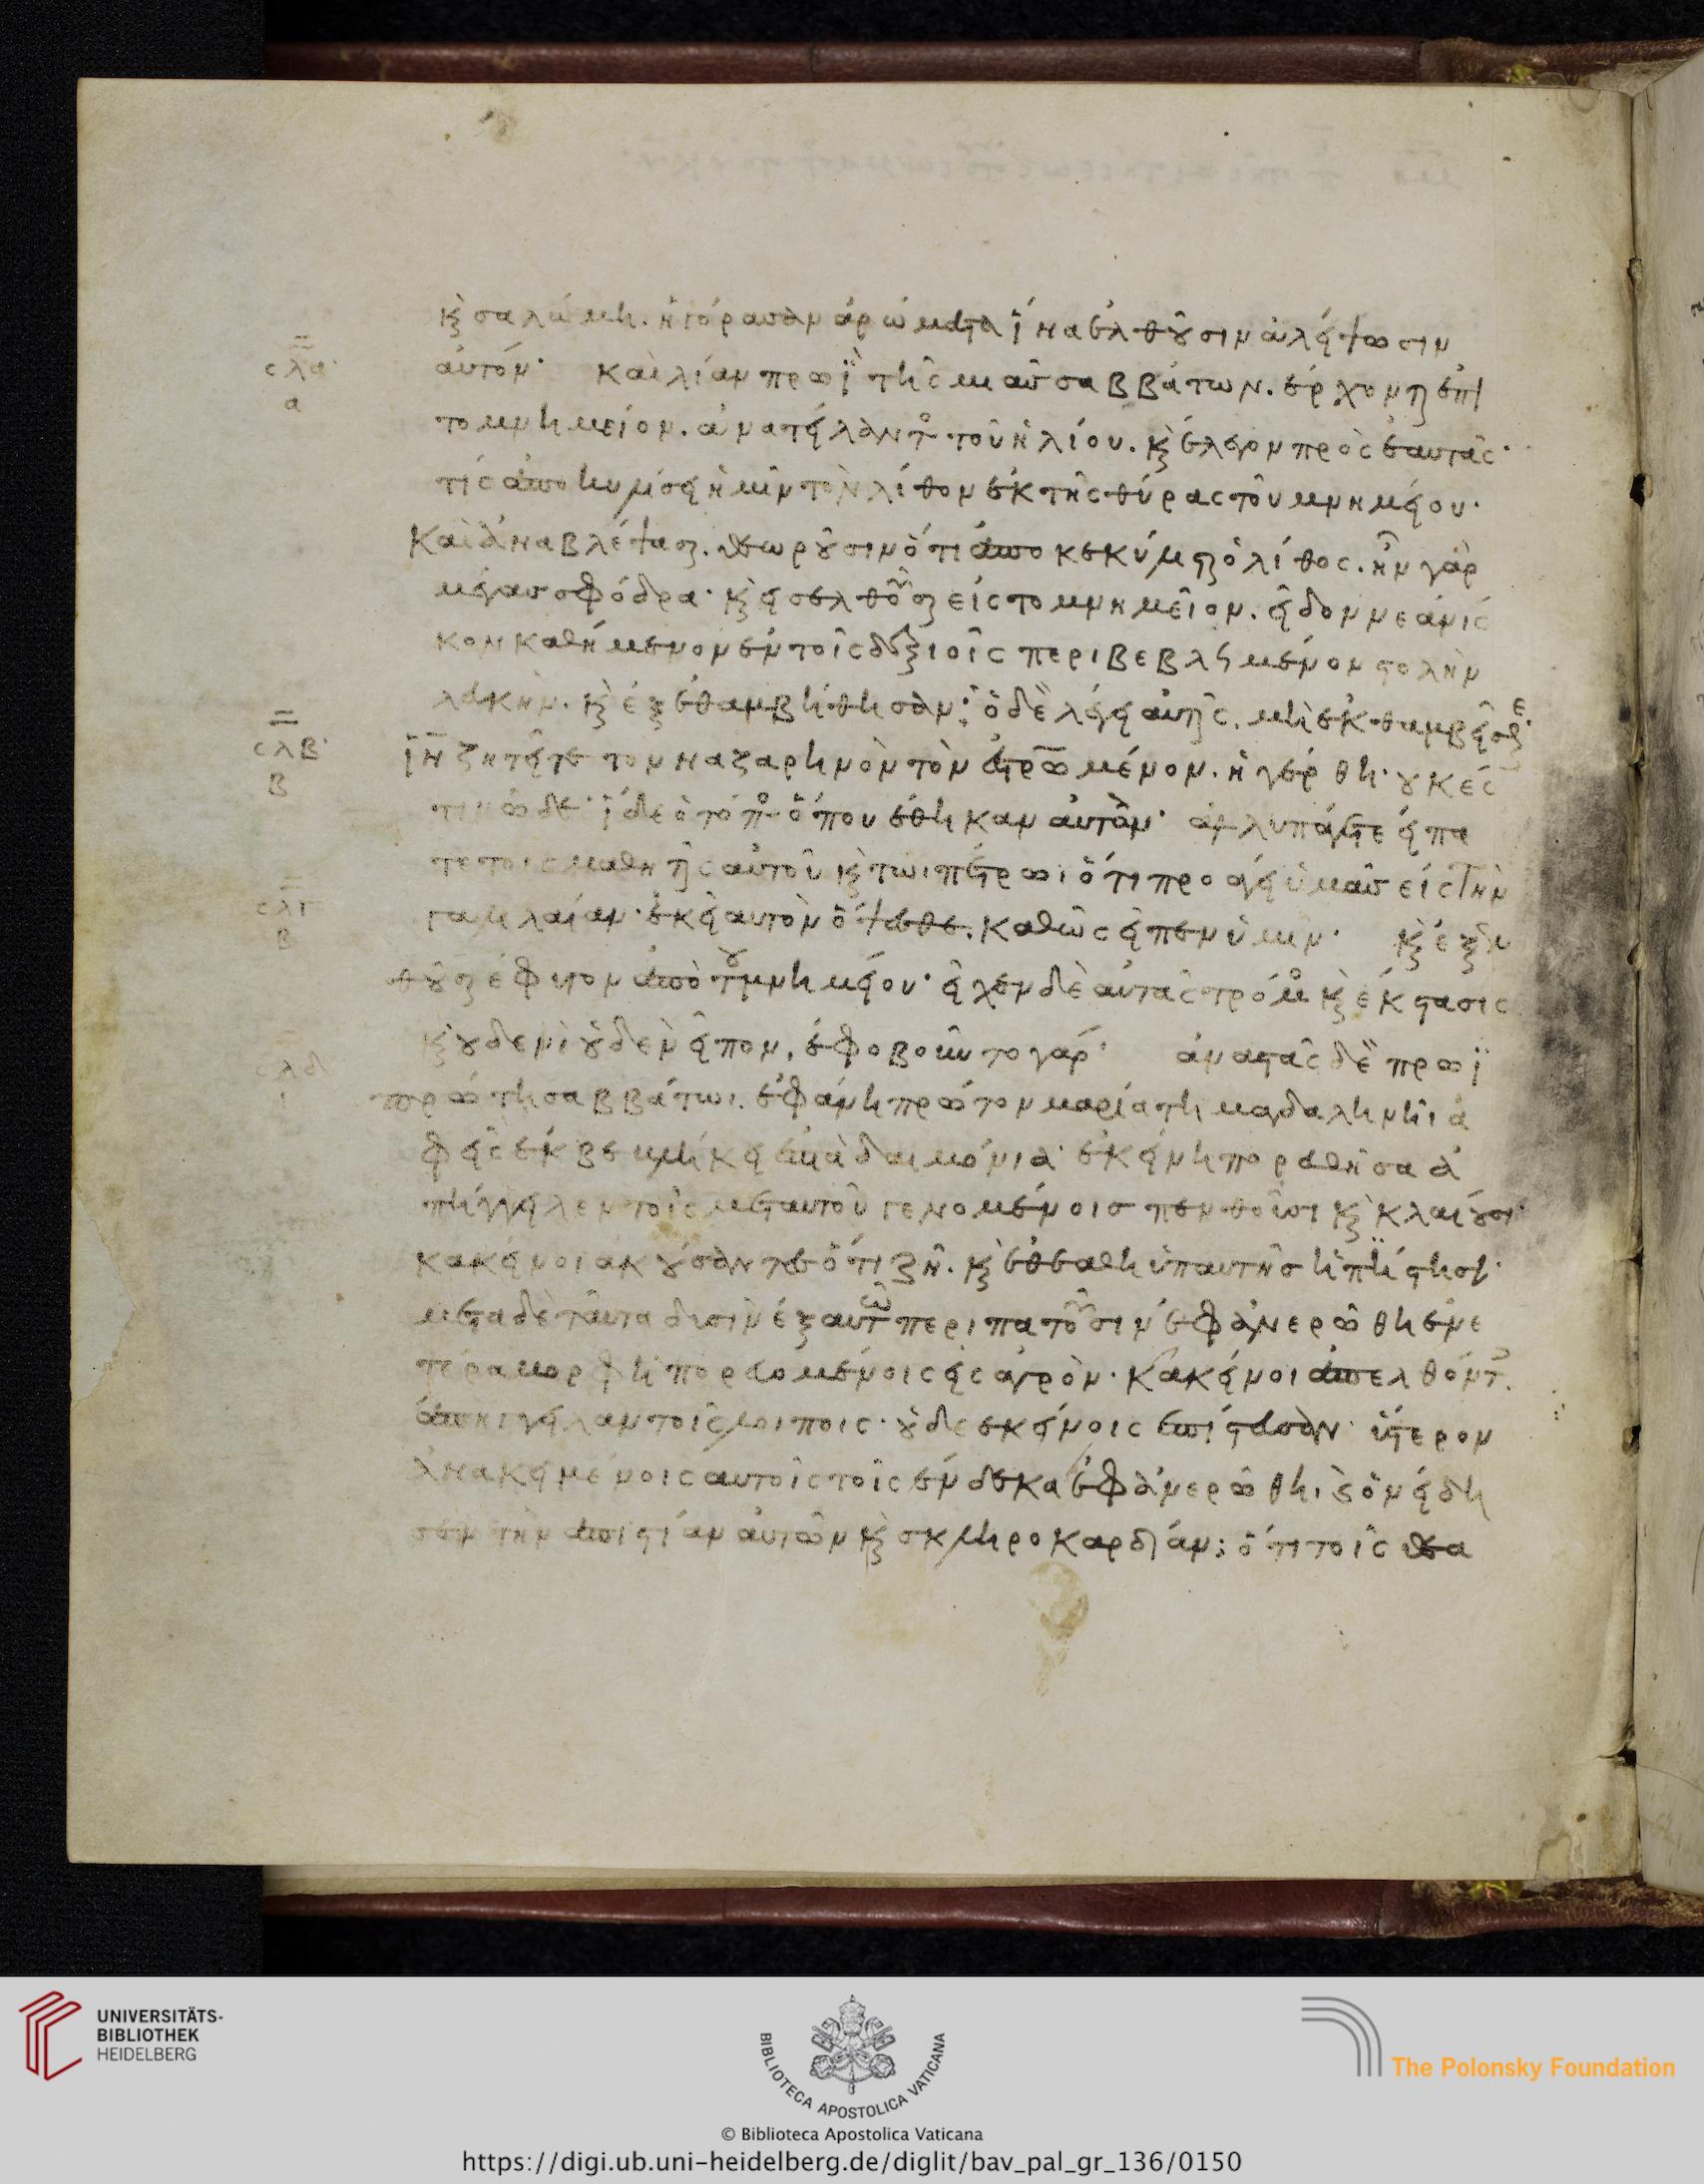 κ(αὶ) σαλώμη. ἠγόρασαν ἀρώματα ἵνα ἐλθοῦσιν ἀλείψωσιν
σλα
α
αὐτόν· καὶ λίαν πρωῒ τῆς μιᾶς σαββάτων. ἔρχονται ἐπὶ
το μνημεῖον. ἀνατείλαντ(ος) τοῦ ἡλίου. κ(αὶ) ἔλεγον πρὸς ἑαυτὰς·
τίς ἀποκυλίσει ἡμῖν τὸν λίθον ἐκ τῆς θύρας τοῦ μνημείου·
Καὶ ἀναβλέψασαι. θεωροῦσιν ὅτι ἀποκεκύλισται ὁ λίθος. ἦν γὰρ
μέγας σφόδρα· κ(αὶ) εἰσελθοῦσαι εἰς το μνημεῖον. εἶδον νεανίσ
κον καθήμενον ἐν τοῖς δεξιοῖς περιβεβλημένον στολὴν
λευκὴν. κ(αὶ) ἐξεθαμβήθησαν· ὁ δὲ λέγει αὐταῖς. μὴ ἐκθαμβεῖσθε·
σλβ
β
ἰν ζητεῖτε τον ναζαρηνὸν τὸν ἐστρωμένον. ἠγέρθη· οὐκ ἔσ
τιν ὧδε· ἴδε ὁ τόπ(ος) ὅπου ἔθηκαν αὐτὸν· ἀλλ υπάγετε εἴπα
τε τοις μαθηταῖς αὐτοῦ κ(αὶ) τωι πέτρωι ὅτι προάγει ὑμᾶς εἰς τὴν
σλγ
β
γαλιλαίαν· ἐκεῖ αυτὸν ὄψεσθε. καθὼς εἶπεν ὑμῖν· κ(αὶ) ἐξελ
θοῦσαι ἔφυγον ἀπὸ τοῦ μνημείου· εἶχεν δὲ αὐτὰς τρόμ(ος) κ(αὶ) ἔκστασις
κ(αὶ) οὐδενὶ οὐδὲν εἶπον, ἐφοβοῦντο γάρ· ἀναστὰς δὲ πρωῒ
σλδ
ι
πρώτη σαββάτωι. ἐφάνη πρῶτον μαρία τη μαγδαληνῆι ἀ
φ εἷς ἐκβεβλήκει ἑπτὰ δαιμόνια· ἐκείνη πορευθεῖσα ἀ
πήγγειλεν τοῖς μετ αυτοῦ γενομένοισ πενθοῦσι κ(αὶ) κλαίουσι·
κακεῖνοι ακούσαντες ὅτι ζῆ. κ(αὶ) ἐθεάθη ὑπ αυτῆσ ἠπίστησαν·
μετα δὲ ταῦτα δυσὶν ἐξ αυτῶ(ν) περιπατοῦσιν ἐφανερώθη ἐν ἑ
τέρα μορφῆ πορευομένοις εἰς ἀγρὸν· κακεῖνοι ἀπελθόντ(ες)
ἀπήγγειλαν τοῖς λοιποις· οὐδε ἐκείνοις ἐπίστευσαν· ὕστερον
ἀνακειμένοις αυτοῖς τοῖς ἕνδεκα ἐφανερώθη, κ(αὶ) ὀνείδι
σεν τὴν ἀπιστίαν αὐτῶν κ(αὶ) σκληροκαρδίαν; ὅτι τοῖς θεα
UNIVERSITÄTS-
BIBLIOTHEK
HEIDELBERG
BIBLIOTECA APOSTOLICA VATICANA
The Polonsky Foundation
© Biblioteca Apostolica Vaticana
https://digi.ub.uni-heidelberg.de/diglit/bav_pal_gr_136/0150